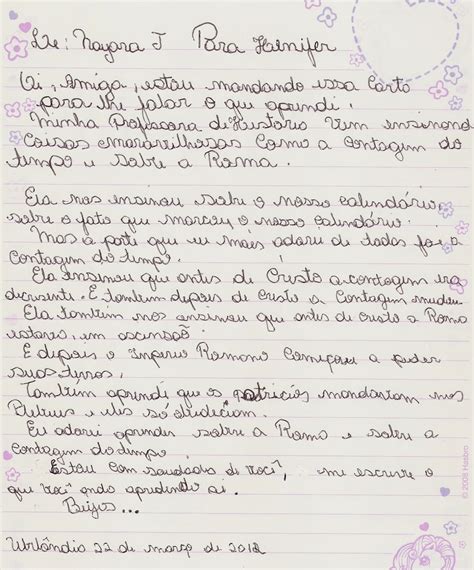 De: Nayara J Para Henifer
Oi, Amiga, estou mandando essa Carta
para lhe falar o que aprendi.
Minha Professora de História vem ensinond
Coisas maravilhosas Como a Contagem do
tempo e sobre a Roma.
Ela nos ensinou sobre o nosso calendário,
sobre o fato que marcou o nosso calendário.
Mas a parti que eu mais adorei de todas foi a
Contagem do tempo.
Ela ensinou que antes de Cristo a contagem era
decrescente. E também depois de Cristo a Contagem mudou
Ela também nos ensinou que antes de cristo a Roma
estava em ascensão.
E depois o Imperio Romano Começou a perder
suas terras.
Também aprendi que os patricios mandavam nos
Plebeus e eles só obdeciam.
Eu adorei aprender sobre a Roma e sobre a
Contagem do tempo.
Estou Com saudades de Você, me escreve o
que Você anda aprendendo ai.
Beijos...
Uberlândia 22 de março de 2012
© 2008 Hasbro